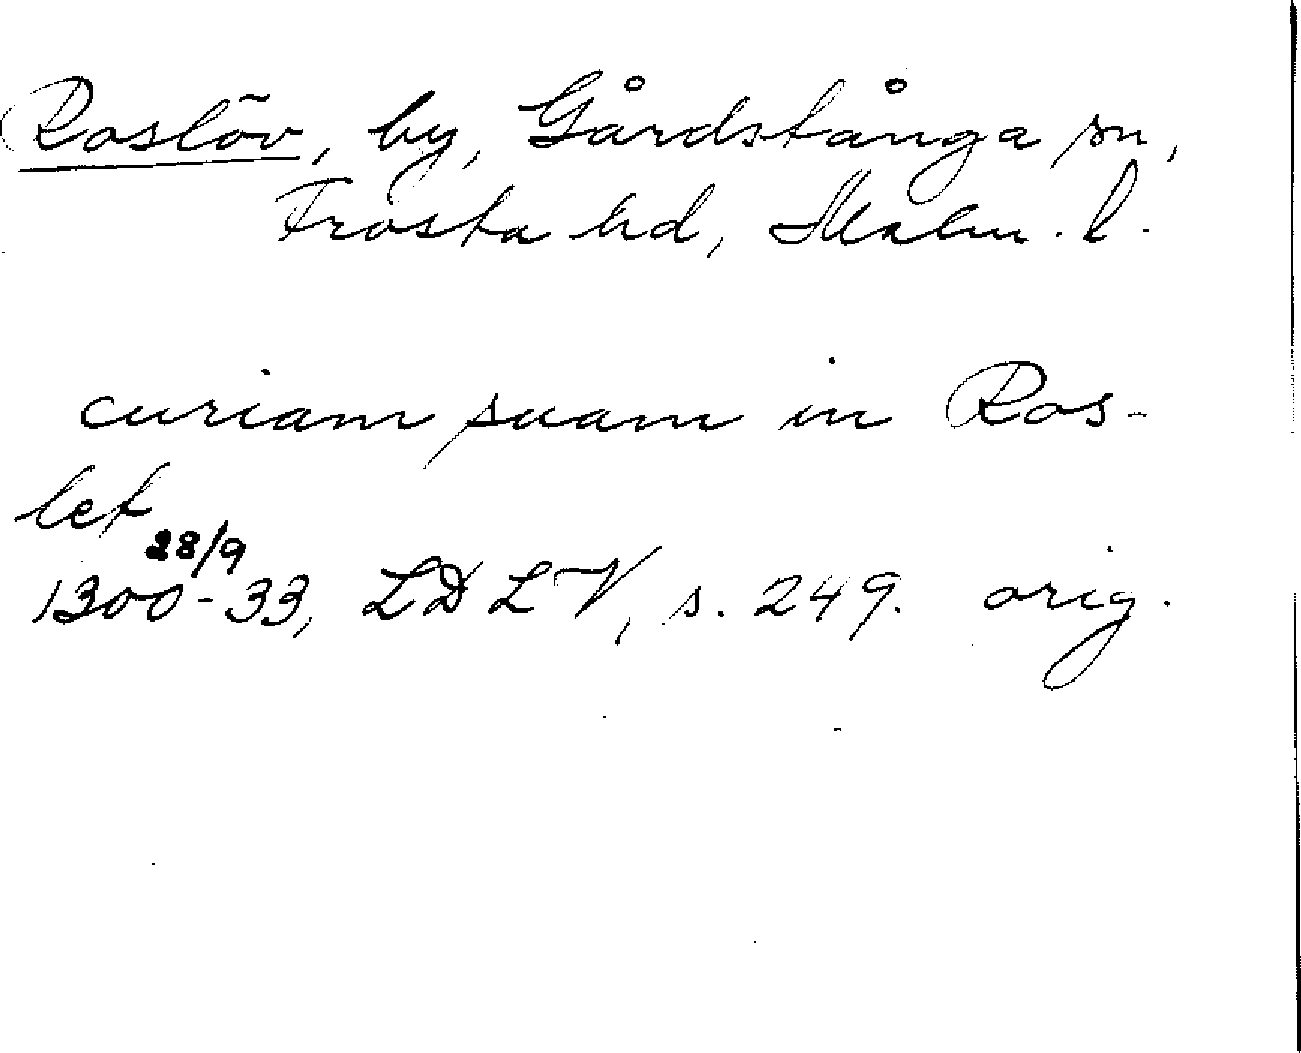 Roslöv, by, Gårdstånga sn,
Frosta hd, Malm. l.
curiam suam in Ros-
let
28/9
1300-33, LDLV, s. 249. orig.